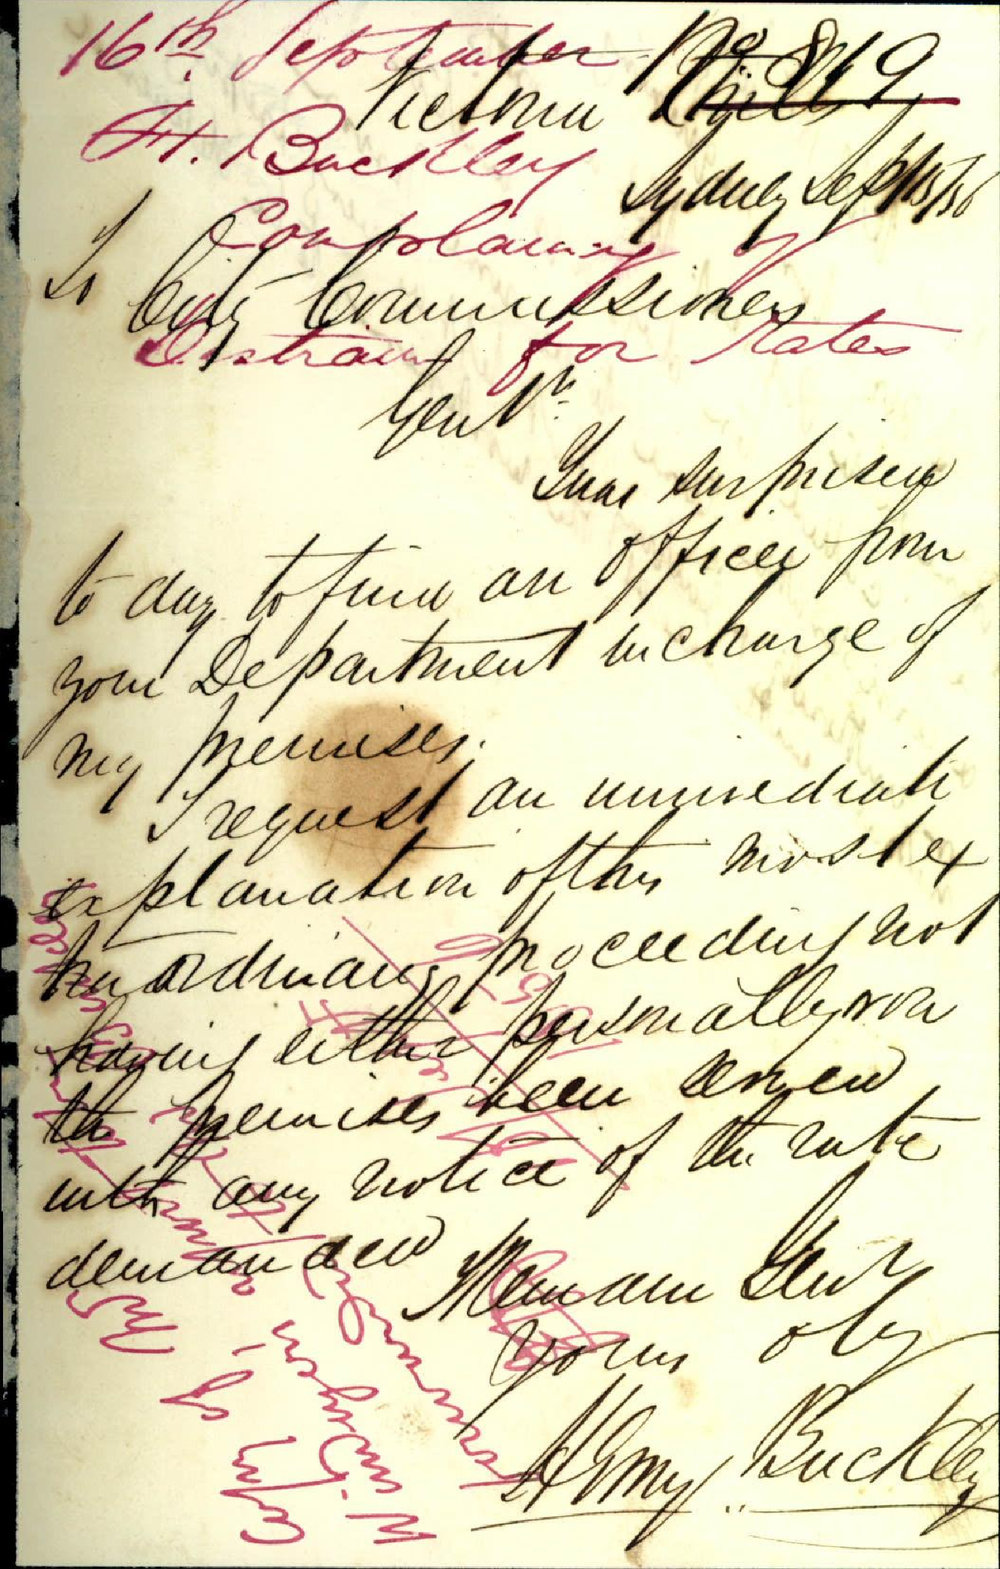 16th September No 819
Victoria Mills
H. Buckley
Sydney Sept 15/56
Complaining of
To
City Commissioners
Distraint for Rates
Gentn.
I was surprised
to day to find an officer from
your Department in charge of
my premises.
I request an immediate
explanation of this most ex
traordinary proceeding not
having either personally or on
the premises been served
with any notice of the rate
demanded
I Remain Gent
Yours obly
Henry Buckley
Copy of